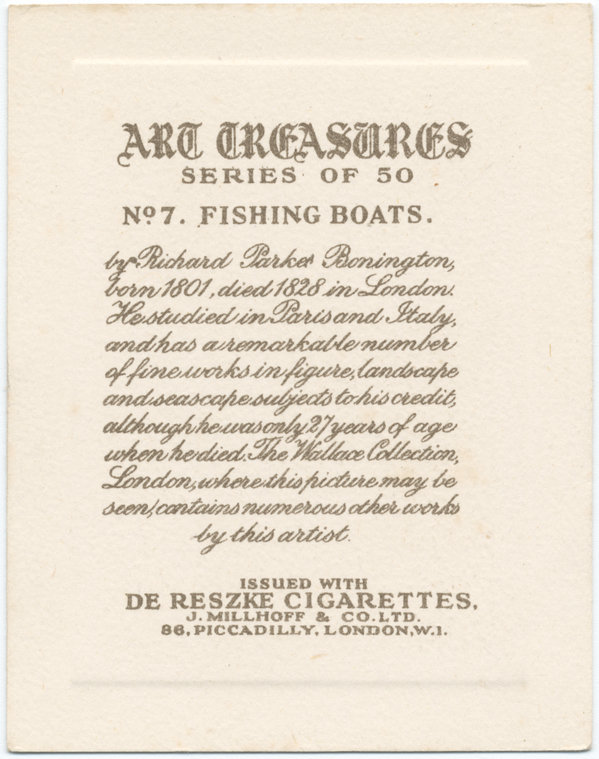 ART TREASURES
SERIES OF 50
Nº 7. FISHING BOATS.
by Richard Parkes Bonington,
born 1801, died 1828 in London.
He studied in Paris and Italy,
and has a remarkable number
of fine works in figure, landscape
and seascape subjects to his credit,
although he was only 27 years of age
when he died. The Wallace Collection,
London, where this picture may be
seen, contains numerous other works
by this artist.
ISSUED WITH
DE RESZKE CIGARETTES,
J. MILLHOFF & CO. LTD.
86, PICCADILLY, LONDON, W.1.